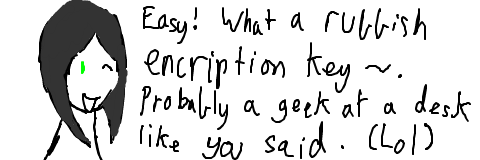 Easy! What a rubbish
encription key ~.
Probably a geek at a desk
like you said. (Lol)